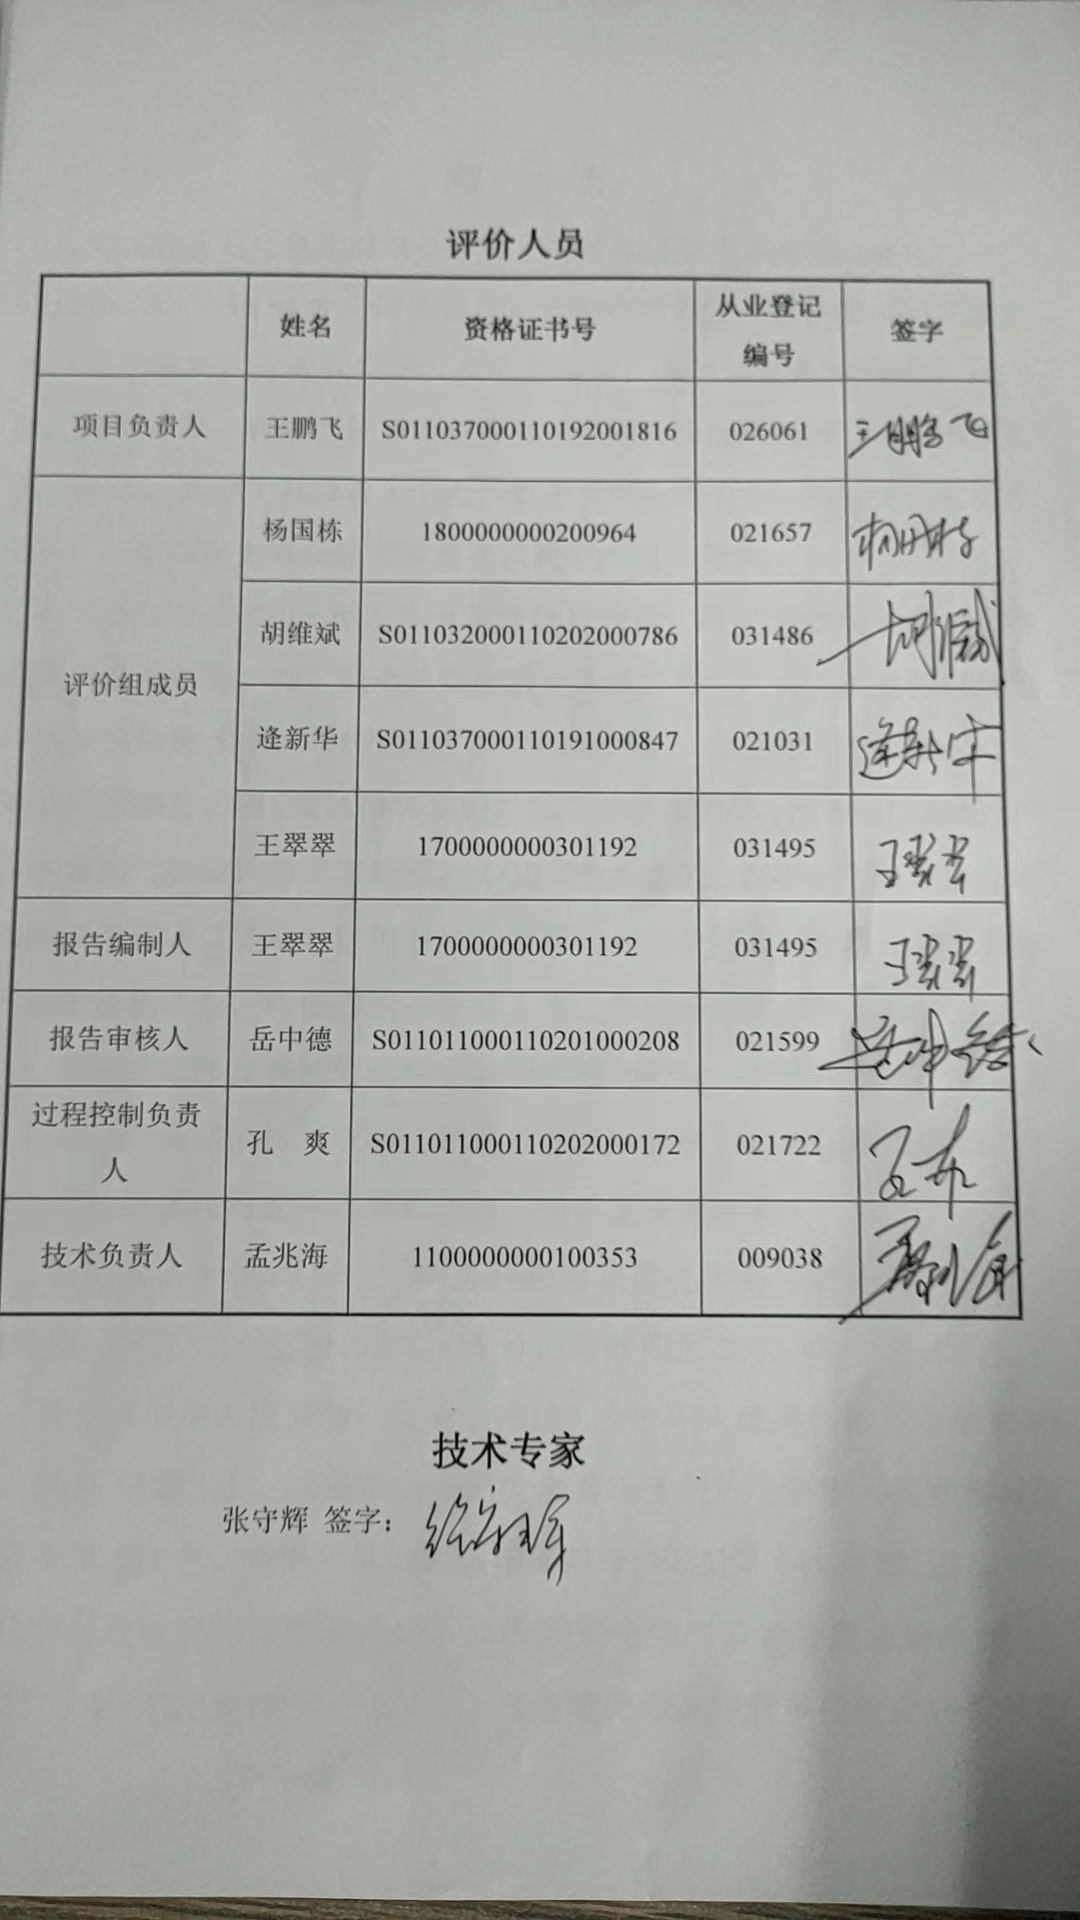 评价人员
姓名 资格证书号 从业登记编号 签字
项目负责人 王鹏飞 S011037000110192001816 026061 王鹏飞
评价组成员 杨国栋 1800000000200964 021657 杨国栋
胡维斌 S011032000110202000786 031486
逄新华 S011037000110191000847 021031 逄新华
王翠翠 1700000000301192 031495 王翠翠
报告编制人 王翠翠 1700000000301192 031495 王翠翠
报告审核人 岳中德 S011011000110201000208 021599 岳中德
过程控制负责人 孔 爽 S011011000110202000172 021722
技术负责人 孟兆海 1100000000100353 009038
技术专家
张守辉 签字：